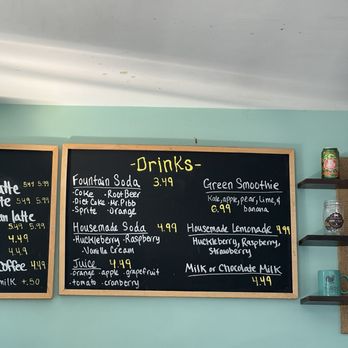 -Drinks-
Fountain Soda 3.49
·Coke ·Root Beer
·Diet Coke ·Mr. Pibb
·Sprite ·Orange
Housemade Soda 4.99
·Huckleberry ·Raspberry
·Vanilla Cream
Juice 4.49
·orange ·apple ·grapefruit
·tomato ·cranberry
Green Smoothie
Kale, apple, pear, lime, &
6.99 banana
Housemade Lemonade 4.99
Huckleberry, Raspberry,
Strawberry
Milk or Chocolate Milk
4.49
atte 5.49 5.99
te 5.49 5.99
latte
5.49 5.99
4.49
4.49
offee 4.49
milk +.50